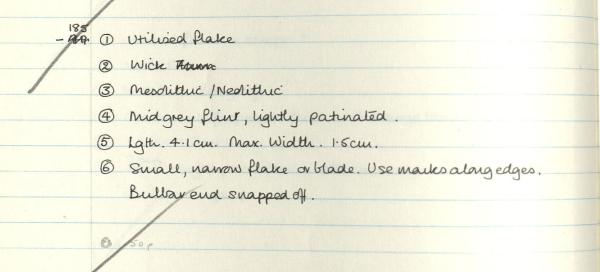 185
① Utilised flake
② Wick
③ Mesolithic / Neolithic
④ Midgrey flint, lightly patinated.
⑤ Lgth. 4.1cm. Max. Width. 1.5cm.
⑥ Small, narrow flake or blade. Use marks along edges.
Bulbar end snapped off.
50p